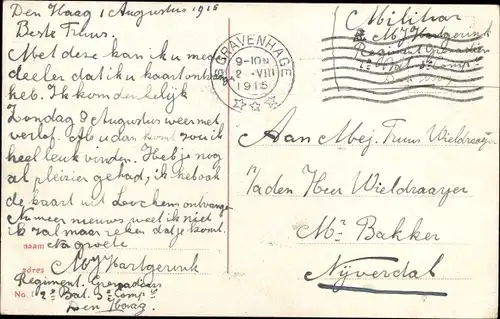 Den Haag 1 Augustus 1915
Beste Truus.
Met deze kan ik u mede
deelen dat ik u kaart ontvan
heb. Ik kom denkelijk
Zondag 8 Augustus weer met
verlof. Als u dan komt zou ik
heel leuk vinden. Heb je nog
al pleizier gehad, ik heb ook
de kaart uit Lochem ontvangen
Nu meer nieuws weet ik niet
ik zal maar zeker dat je komt.
naam Na groete
adres M J Hartgerink
Regiment Grenadiers
No. 1 2e Bat. 3e Comp ie
Den Haag
'S-GRAVENHAGE
9-10N
2-VIII
1915
Militair
M J Hartgerink
Regiment Grenadiers
Aan Mej. Truus Wieldraaijer
p/a den Heer Wieldraaijer
Mr Bakker
Nijverdal